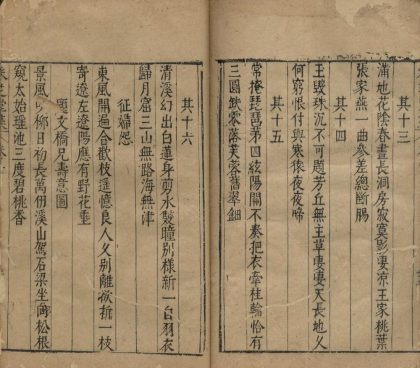 其十三
滿地花陰春晝長洞房寂寞影凄凉王家桃葉
張家燕一曲參差總斷腸
其十四
玉毁珠沉不可題芳丘無主草萋萋天長地乂
何窮恨付與寒猿夜夜啼
其十五
常掩琵琶第四絃陽關不奏把衣牽桂輪恰有
三圓缺零落芙蓉舊翠鈿
其十六
清溪幻出白蓮身剪水雙瞳別樣新一自羽衣
歸月窟三山無路海無津
征婦怨
東風開遍合歡枝遥憶良人乂別離欲折一枝
寄遼左遼陽應有野花垂
題文橋兄壽意圖
景風 柳日初長萬冊溪山駕石梁坐 松根
窺太始瑶池三度碧桃香